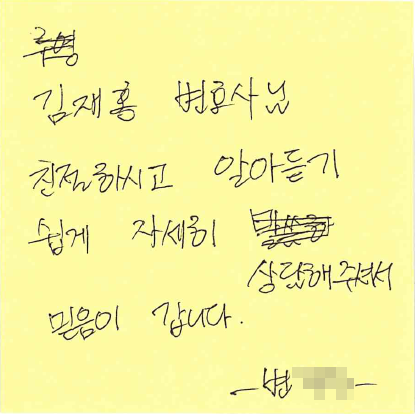 김재홍 변호사님
친절하시고 알아듣기
쉽게 자세히
상담해주셔서
믿음이 갑니다.
- 변 -